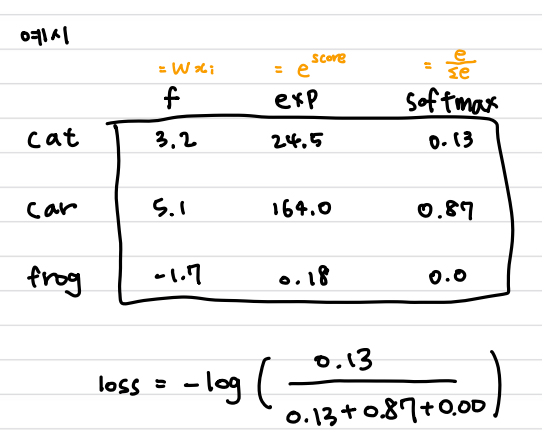 예시
= Wxi = e^score = e/Σe
f exp softmax
cat 3.2 24.5 0.13
car 5.1 164.0 0.87
frog -1.7 0.18 0.0
loss = -log ( 0.13 / 0.13+0.87+0.00 )